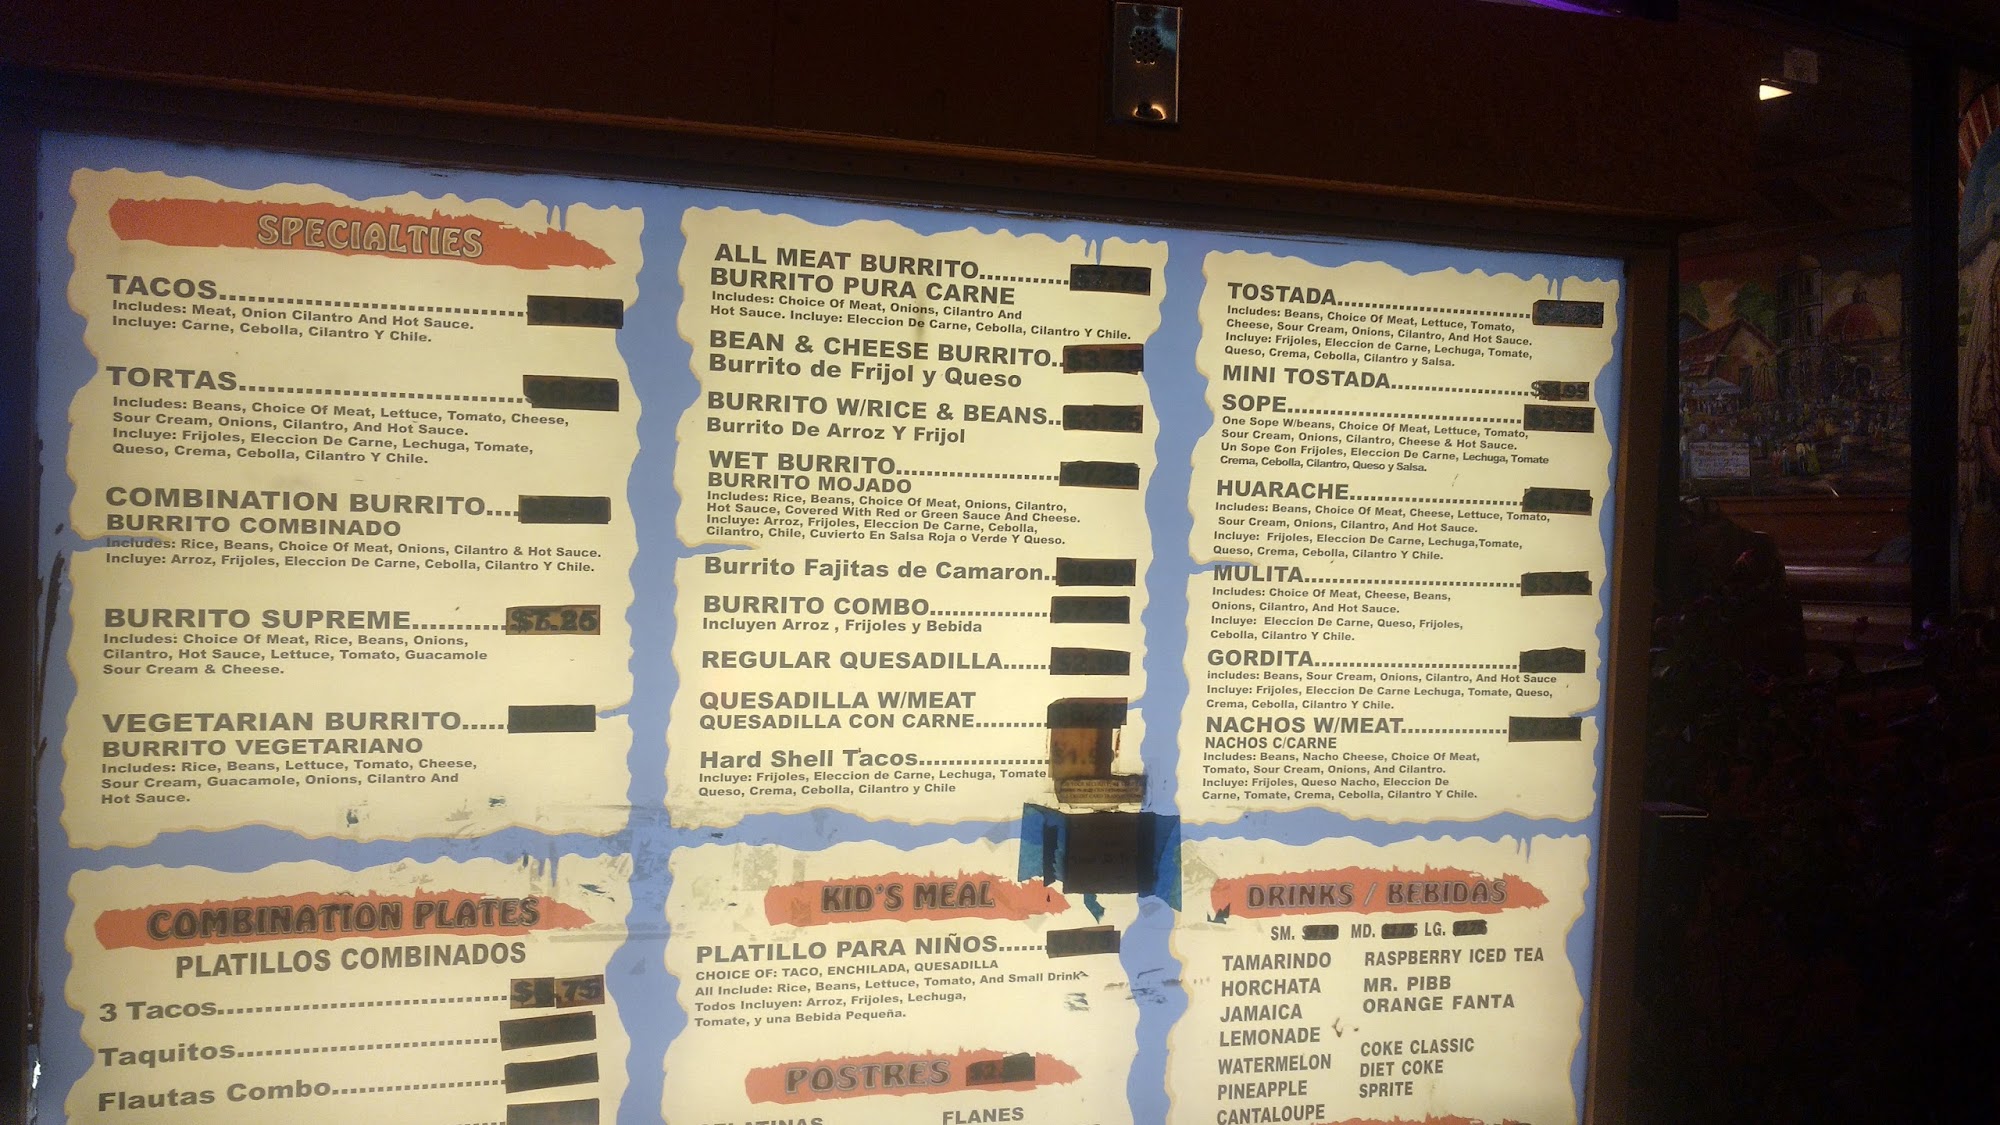 SPECIALTIES
TACOS
Includes: Meat, Onion Cilantro And Hot Sauce.
Incluye: Carne, Cebolla, Cilantro Y Chile.
TORTAS
Includes: Beans, Choice Of Meat, Lettuce, Tomato, Cheese,
Sour Cream, Onions, Cilantro, And Hot Sauce.
Incluye: Frijoles, Eleccion De Carne, Lechuga, Tomate,
Queso, Crema, Cebolla, Cilantro Y Chile.
COMBINATION BURRITO....
BURRITO COMBINADO
Includes: Rice, Beans, Choice Of Meat, Onions, Cilantro & Hot Sauce.
Incluye: Arroz, Frijoles, Eleccion De Carne, Cebolla, Cilantro Y Chile.
BURRITO SUPREME..........
Includes: Choice Of Meat, Rice, Beans, Onions,
Cilantro, Hot Sauce, Lettuce, Tomato, Guacamole
Sour Cream & Cheese.
VEGETARIAN BURRITO.....
BURRITO VEGETARIANO
Includes: Rice, Beans, Lettuce, Tomato, Cheese,
Sour Cream, Guacamole, Onions, Cilantro And
Hot Sauce.
ALL MEAT BURRITO.......... $7.75
BURRITO PURA CARNE
Includes: Choice Of Meat, Onions, Cilantro And
Hot Sauce. Incluye: Eleccion De Carne, Cebolla, Cilantro Y Chile.
BEAN & CHEESE BURRITO.. $3.25
Burrito de Frijol y Queso
BURRITO W/RICE & BEANS..
Burrito De Arroz Y Frijol
WET BURRITO
BURRITO MOJADO
Includes: Rice, Beans, Choice Of Meat, Onions, Cilantro,
Hot Sauce, Covered With Red or Green Sauce And Cheese.
Incluye: Arroz, Frijoles, Eleccion De Carne, Cebolla,
Cilantro, Chile, Cuvierto En Salsa Roja o Verde Y Queso.
Burrito Fajitas de Camaron..
BURRITO COMBO............. $7.25
Incluyen Arroz , Frijoles y Bebida
REGULAR QUESADILLA......
QUESADILLA W/MEAT
QUESADILLA CON CARNE.........
Hard Shell Tacos................
Incluye: Frijoles, Eleccion de Carne, Lechuga, Tomate
Queso, Crema, Cebolla, Cilantro y Chile
TOSTADA
Includes: Beans, Choice Of Meat, Lettuce, Tomato,
Cheese, Sour Cream, Onions, Cilantro, And Hot Sauce.
Incluye: Frijoles, Eleccion de Carne, Lechuga, Tomate,
Queso, Crema, Cebolla, Cilantro y Salsa.
MINI TOSTADA
SOPE
One Sope W/beans, Choice Of Meat, Lettuce, Tomato,
Sour Cream, Onions, Cilantro, Cheese & Hot Sauce.
Un Sope Con Frijoles, Eleccion De Carne, Lechuga, Tomate
Crema, Cebolla, Cilantro, Queso y Salsa.
HUARACHE $4.75
Includes: Beans, Choice Of Meat, Cheese, Lettuce, Tomato,
Sour Cream, Onions, Cilantro, And Hot Sauce.
Incluye: Frijoles, Eleccion De Carne, Lechuga,Tomate,
Queso, Crema, Cebolla, Cilantro Y Chile.
MULITA $3.75
Includes: Choice Of Meat, Cheese, Beans,
Onions, Cilantro, And Hot Sauce.
Incluye: Eleccion De Carne, Queso, Frijoles,
Cebolla, Cilantro Y Chile.
GORDITA
includes: Beans, Sour Cream, Onions, Cilantro, And Hot Sauce
Incluye: Frijoles, Eleccion De Carne Lechuga, Tomate, Queso,
Crema, Cebolla, Cilantro Y Chile.
NACHOS W/MEAT
NACHOS C/CARNE
Includes: Beans, Nacho Cheese, Choice Of Meat,
Tomato, Sour Cream, Onions, And Cilantro.
Incluye: Frijoles, Queso Nacho, Eleccion De
Carne, Tomate, Crema, Cebolla, Cilantro Y Chile.
COMBINATION PLATES
PLATILLOS COMBINADOS
3 Tacos
Taquitos
Flautas Combo
KID'S MEAL
PLATILLO PARA NIÑOS......
CHOICE OF: TACO, ENCHILADA, QUESADILLA
All Include: Rice, Beans, Lettuce, Tomato, And Small Drink
Todos Incluyen: Arroz, Frijoles, Lechuga,
Tomate, y una Bebida Pequeña.
POSTRES
FLANES
DRINKS / BEBIDAS
SM. MD. LG.
TAMARINDO
HORCHATA
JAMAICA
LEMONADE
WATERMELON
PINEAPPLE
CANTALOUPE
RASPBERRY ICED TEA
MR. PIBB
ORANGE FANTA
COKE CLASSIC
DIET COKE
SPRITE